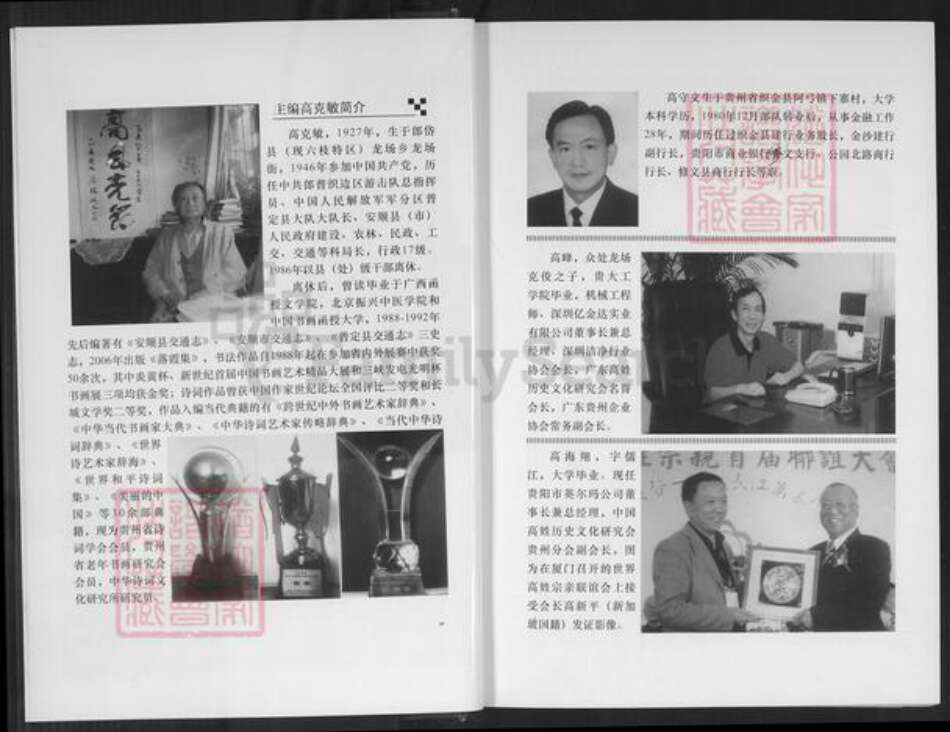 主编高克敏简介
高克敏，1927年，生于郎岱
县（现六枝特区）龙场乡龙场
街，1946年参加中国共产党，历
任中共郎普织边区游击队总指挥
员、中国人民解放军军分区普
定县大队大队长、安顺县（市）
人民政府建设、农林、民政、工
交、交通等科局长，行政17级。
1986年以县（处）级干部离休。
离休后，曾读毕业于广西函
授文学院，北京振兴中医学院和
中国书画函授大学，1988-1992年
先后编著有《安顺县交通志》、《安顺市交通志》、《普定县交通志》三史
志，2006年出版《落霞集》，书法作品自1988年起在参加省内外展赛中获奖
50余次，其中炎黄杯、新世纪首届中国书画艺术精品大展和三峡发电光明杯
书画展三项均获金奖；诗词作品曾获中国作家世纪论坛全国评比二等奖和长
城文学奖二等奖，作品入编当代典籍的有《跨世纪中外书画艺术家辞典》、
《中华当代书画家大典》、《中华诗词艺术家传略辞典》、《当代中华诗
词辞典》、《世界
诗艺术家辞海》、
《世界和平诗词
集》、《美丽的中
国》等10余部典
籍，现为贵州省诗
词学会会员，贵州
省老年书画研究会
会员，中华诗词文
化研究所研究员。
高守文生于贵州省织金县阿弓镇下寨村，大学
本科学历，1980年12月部队转业后，从事金融工作
28年，期间历任过织金县建行业务股长，金沙建行
副行长，贵阳市商业银行 文支行、公园北路商行
行长、修文县商行行长等职。
高峰，众处龙场
克俊之子，贵大工
学院毕业，机械工程
师、深圳亿金达实业
有限公司董事长兼总
经理、深圳洁净行业
协会会长，广东高姓
历史文化研究会名誉
会长，广东贵州企业
协会常务副会长。
高海翔，字儒
江，大学毕业，现任
贵阳市英尔玛公司董
事长兼总经理、中国
高姓历史文化研究会
贵州分会副会长，图
为在厦门召开的世界
高姓宗亲联谊会上接
受会长高新平（新加
坡国籍）发证影像。
宗親首届聯誼大會
FamilySearch